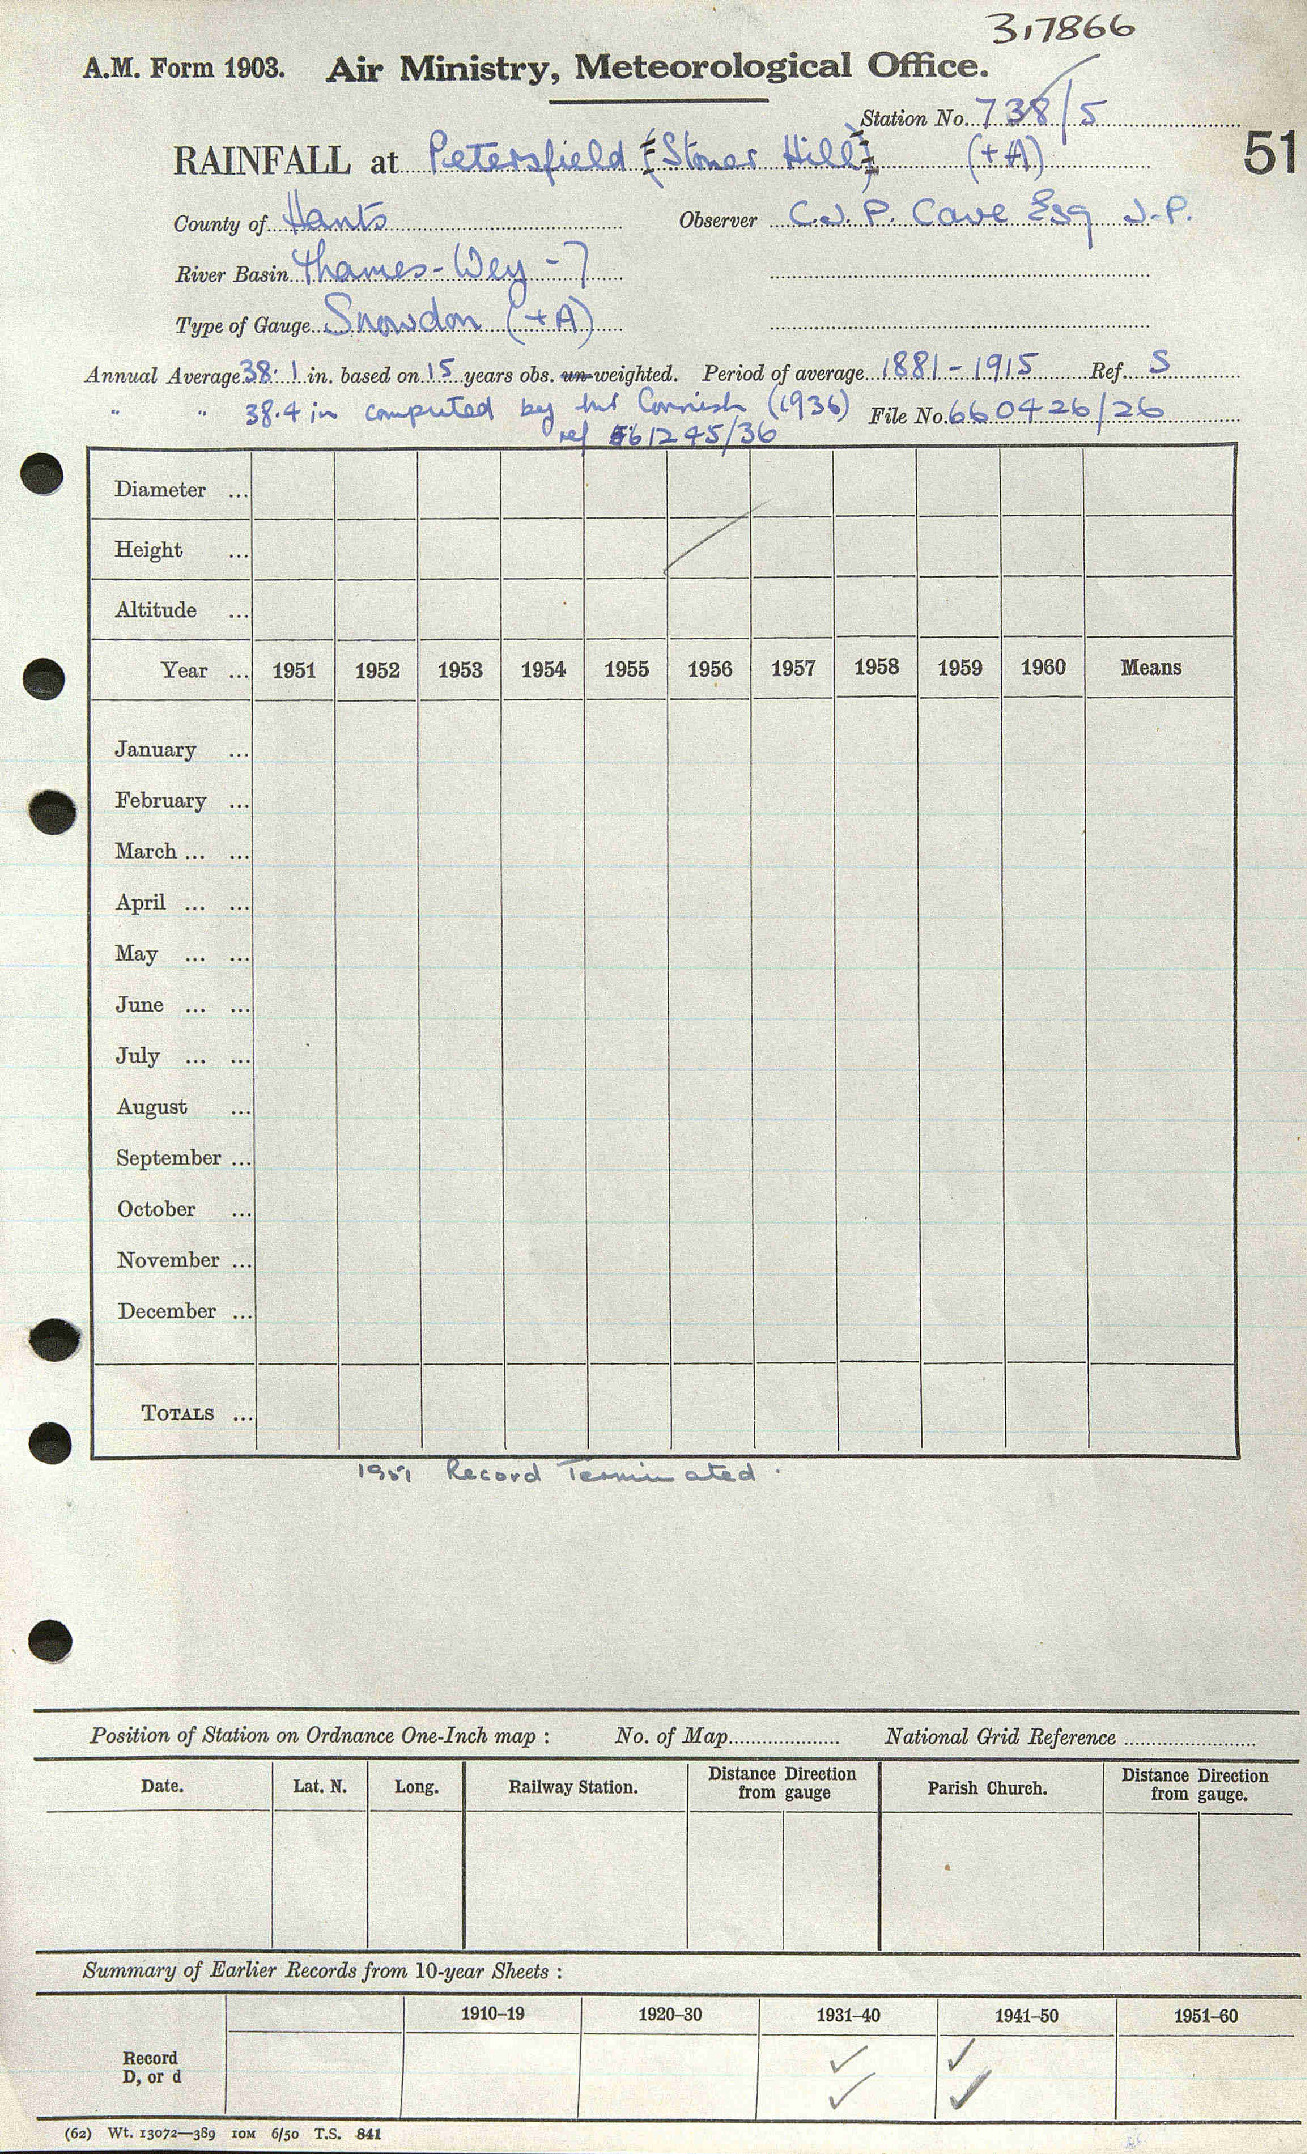 317866
A.M. Form 1903. Air Ministry, Meteorological Office.
Station No. 738/5
RAINFALL at Petersfield (Stoner Hill) (+A) 51
County of Hants Observer C.J.P. Cave Esq J.P.
River Basin Thames-Wey-7
Type of Gauge Snowdon (+A)
Annual Average 38.1 in. based on 15 years obs. un-weighted. Period of average 1881-1915 Ref. S
" " 38.4 in computed by Cornish (1936) File No. 660426/26
ref 561245/36
Diameter ...
Height ...
Altitude ...
Year ... 1951 1952 1953 1954 1955 1956 1957 1958 1959 1960 Means
January ...
February ...
March ... ...
April ... ...
May ... ...
June ... ...
July ... ...
August ...
September ...
October ...
November ...
December ...
TOTALS ...
1951 Record Terminated.
Position of Station on Ordnance One-Inch map : No. of Map National Grid Reference
Date. Lat. N. Long. Railway Station. Distance Direction from gauge Parish Church. Distance Direction from gauge.
Summary of Earlier Records from 10-year Sheets :
1910-19 1920-30 1931-40 1941-50 1951-60
Record ✓ ✓
D, or d ✓ ✓
(62) Wt. 13072—389 10M 6/50 T.S. 841